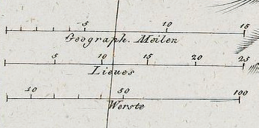 5 10 15
Geograph. Meilen
5 10 15 20 25
Lieues
10 50 100
Werste